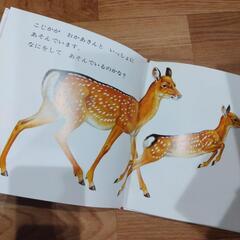 こじかが おかあさんと いっしょに
あそんでいます。
なにをして あそんでいるのかな？